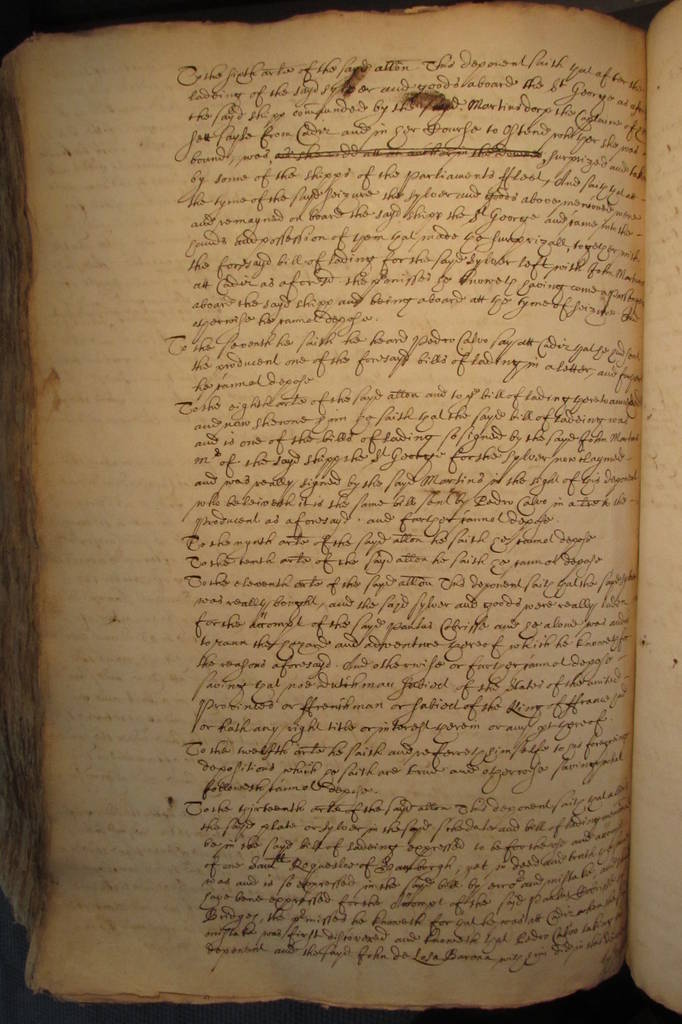 To the sixth arte of the sayd allon This deponent saith that after the
ladeing of the sayd sylver and goods aboard the St George as afore
the sayd shipp commanded by the sayd Martinsdorp the Captaine of
sett sayle from Cadiz and in her Course to Ostend whither she was
bound, was, surprized and taken
by some of the shipps of the Parliaments ffleet, And saith that att
the tyme of the sayd seizure the sylver and goods above mentioned were
and remayned on board the sayd shipp the St George and came into the
hands and possession of them that made the surprizall, together with
the foresayd bill of lading for the sayd sylver left with John Martins
att Cadiz as aforesd the premisses he knoweth having come a passenger
aboard the sayd shipp and being aboard att the tyme of seizure And
otherwise he cannot depose.
To the seventh he saith he heard Pedro Calvo say att Cadiz that he had sent
the producent one of the foresayd bills of lading in a letter, and further
he cannot depose
To the eighth arte of the sayd allon and to the bill of lading thereto annexed
and now showne him he saith that the sayd bill of ladeing was
and is one of the bills of lading so signed by the sayd John Martins
mr of the sayd shipp the St George for the sylver now claymed
and was really signed by the sayd Martins in the sight of this deponent
who beleiveth it is the same bill sent by Pedro Calvo in a lre to the
producent as aforesayd. and further cannot depose
To the nynth arte of the sayd allon he saith he cannot depose
To the tenth arte of the sayd allon he saith he cannot depose
To the eleventh arte of the sayd allon This deponent saith that the sayd
was really bought, and the sayd sylver and goods were really laden
for the accompt of the sayd and he alone was and
to runn the hazard and adventure thereof which he knoweth for
the reasons aforesayd And otherwise or further cannot depose
saving that noe dutchman subiect of the States of the united
Provinces or ffrenchman or subiect of the King of ffrance had
or hath any right title or interest therein or any pt thereof
To the twelfth arte he saith and referreth himselfe to his foregoeing
depositions which he saith are true and otherwise saving what
followeth cannot depose.
To the thirteenth arte of the sayd allon This deponent saith that albeit
the sayd plate or sylver in the sayd schedule and bill of lading mentioned
be in the sayd bill of ladeing expressed to be for the use and accompt
of one of Hamburgh, yet in deed and truth the same
was and is so expressed in the sayd bill by error and mistake, and should
have bene expressed for the accompt of the sayd of
Bridges, the premisses he knoweth for that he was att Cadiz when the
mistake was first discovered and knoweth that Pedro Calvo taking this
deponent and the sayd John de Losa Barona with him did in this